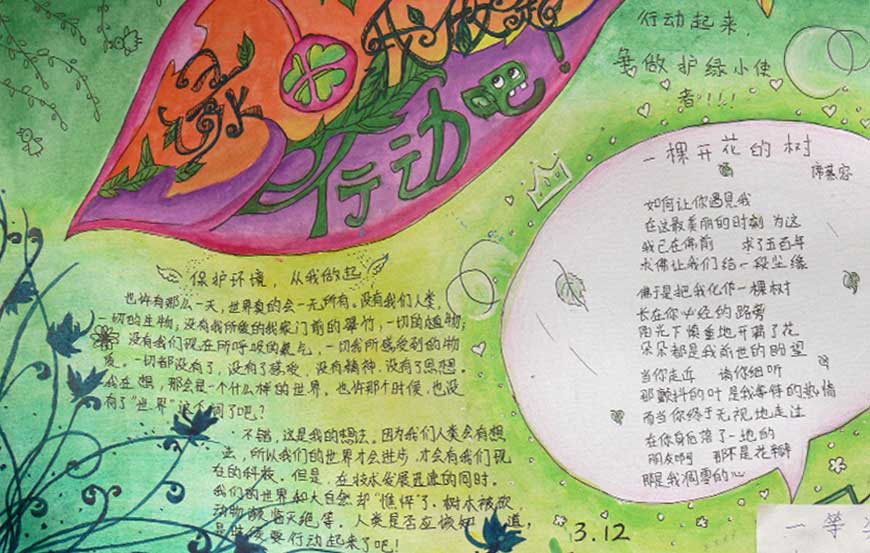 绿水
我做起
行动吧！
行动起来，
争做护绿小使
者！！！
一棵开花的树
席慕容
如何让你遇见我
在这最美丽的时刻 为这
我已在佛前 求了五百年
求佛让我们结一段尘缘
佛于是把我化作一棵树
长在你必经的路旁
阳光下慎重地开满了花
朵朵都是我前世的盼望
当你走近 请你细听
那颤抖的叶是我等待的热情
而当你终于无视地走过
在你身后落了一地的
朋友啊 那不是花瓣
那是我凋零的心
保护环境，从我做起
也许有那么一天，世界真的会一无所有。没有我们人类，
一切的生物；没有我所爱的我家门前的翠竹，一切的植物；
没有我们现在所呼吸的氧气，一切我所感受到的物
质。一切都没有了，没有了感受，没有精神，没有了思想。
我在想，那会是一个什么样的世界。也许那个时候，也没
有了“世界”这个词了吧？
不错，这是我的想法。因为我们人类会有想
法，所以我们的世界才会进步，才会有我们现
在的科技。但是，在技术发展迅速的同时，
我们的世界和大自然却“憔悴”了。树木被砍，
动物濒临灭绝等。人类是否应该知道，
是时候要行动起来了吧！
3.12
一等